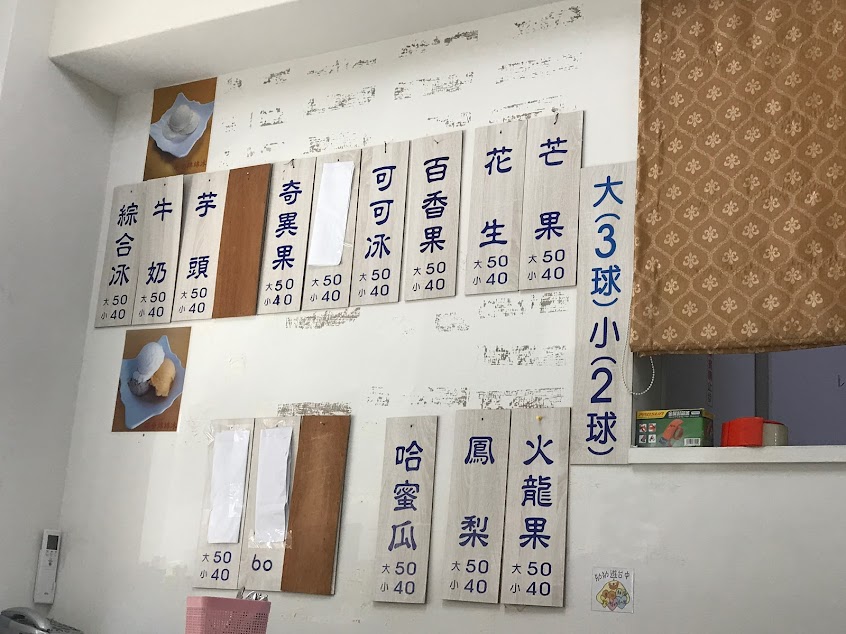 大(3球)小(2球)
芒果
大50
小40
花生
大50
小40
百香果
大50
小40
可可冰
大50
小40
大50
小40
奇異果
大50
小40
芋頭
大50
小40
牛奶
大50
小40
綜合冰
大50
小40
火龍果
大50
小40
鳳梨
大50
小40
哈蜜瓜
大50
小40
60
大50
小40